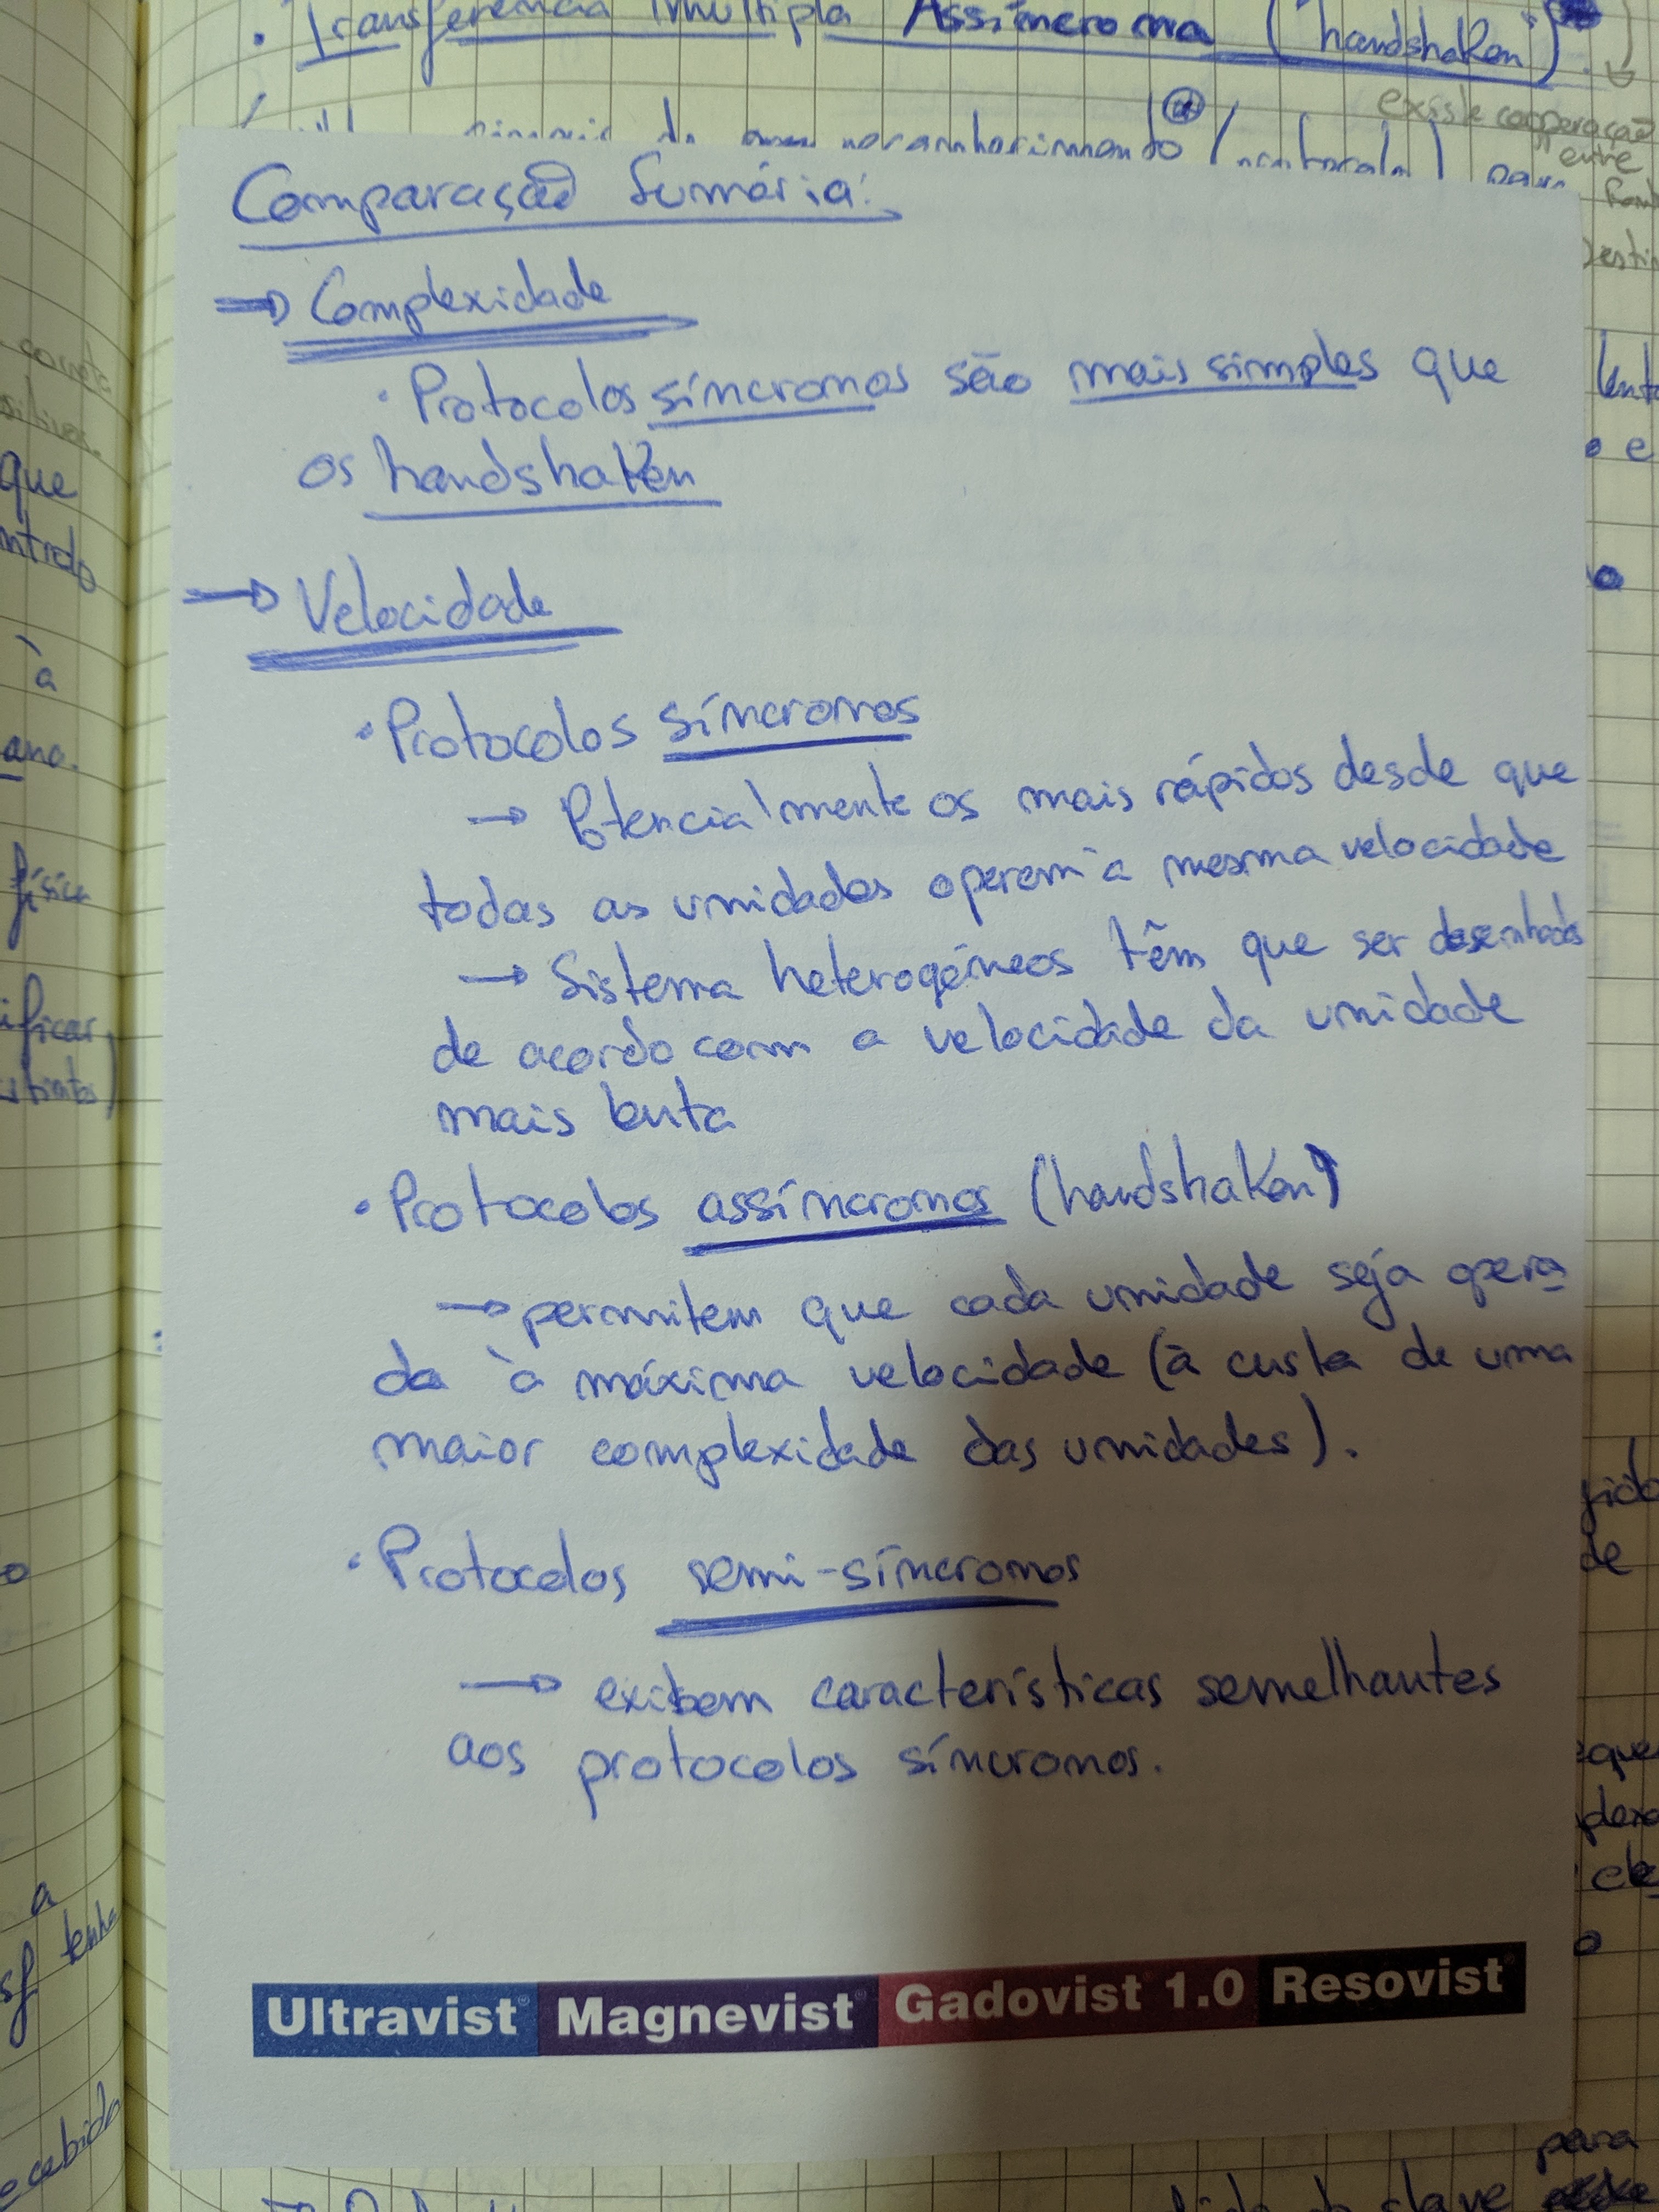 . Transferência múltipla Assíncrona ("handshaken")
existe cooperação
entre
Comparação Sumária:
→ Complexidade
· Protocolos síncronos são mais simples que
os handshaken
→ Velocidade
· Protocolos síncronos
→ Potencialmente os mais rápidos desde que
todas as unidades operem à mesma velocidade
→ Sistema heterogéneos têm que ser desenhados
de acordo com a velocidade da unidade
mais lenta
· Protocolos assíncronos (handshaken)
→ permitem que cada unidade seja opera
da à máxima velocidade (à custa de uma
maior complexidade das unidades).
· Protocolos semi-síncronos
→ exibem características semelhantes
aos protocolos síncronos.
Ultravist® Magnevist® Gadovist® 1.0 Resovist®
que
à
física
a
tenha
e
de
para
slave